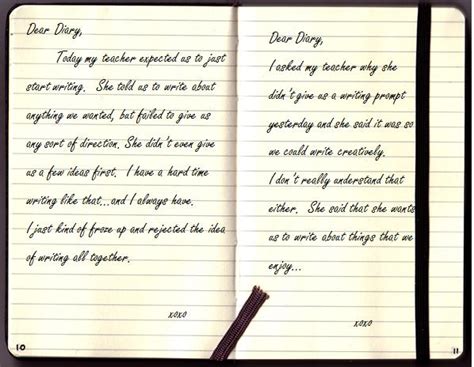 Dear Diary,
Today my teacher expected us to just
start writing. She told us to write about
anything we wanted, but failed to give us
any sort of direction. She didn't even give
us a few ideas first. I have a hard time
writing like that...and I always have.
I just kind of froze up and rejected the idea
of writing all together.
xoxo
10
Dear Diary,
I asked my teacher why she
didn't give us a writing prompt
yesterday and she said it was so
we could write creatively.
I don't really understand that
either. She said that she wants
us to write about things that we
enjoy...
xoxo
11